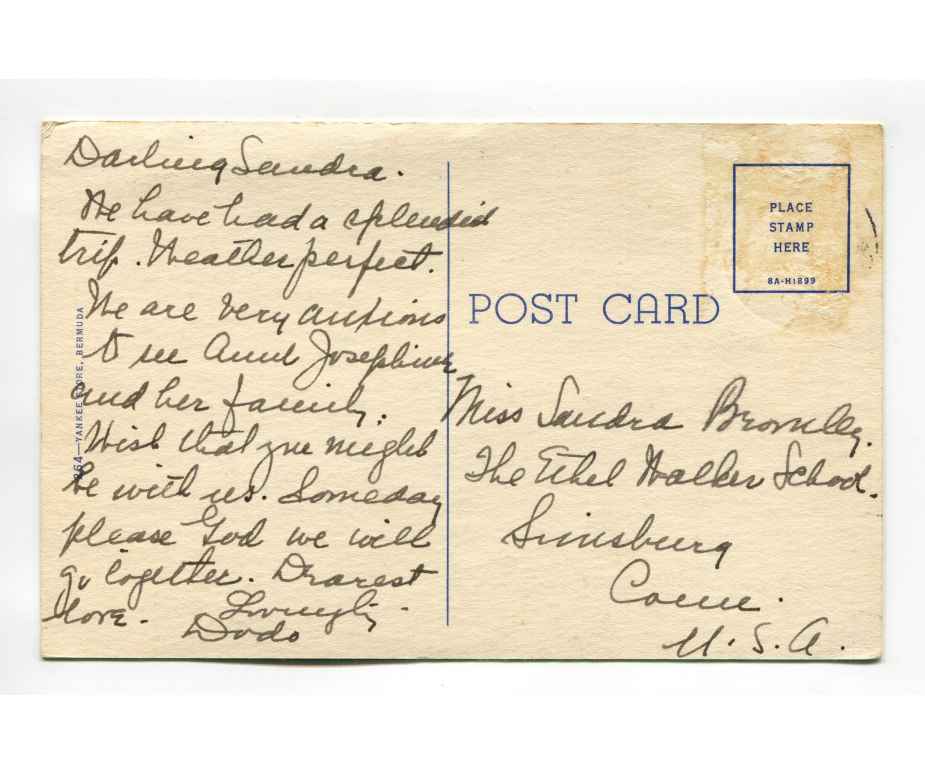 Darling Sandra.
We have had a splendid
trip. Weather perfect.
We are very anxious
to see Aunt Josephine
and her family.
Wish that you might
be with us. Someday
please God we will
go together. Dearest
love. Lovingly.
Dodo
64—YANKEE STORE, BERMUDA
PLACE
STAMP
HERE
8A-H1899
POST CARD
Miss Sandra Bromley.
The Ethel Walker School.
Simsburg
Conn.
U.S.A.